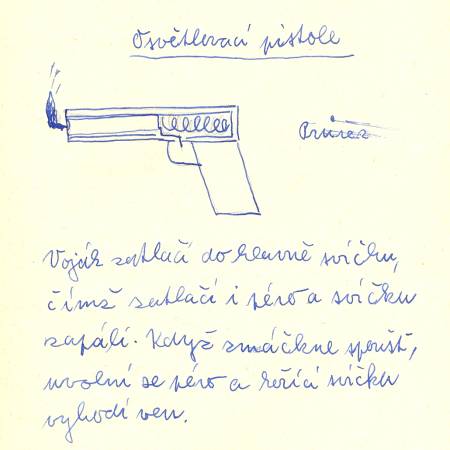 Osvětlovací pistole
Průřez
Voják zatlačí do hlavně svíčku,
čímž zatlačí i péro a svíčku
zapálí. Když zmáčkne spoušť,
uvolní se péro a hořící svíčku
vyhodí ven.